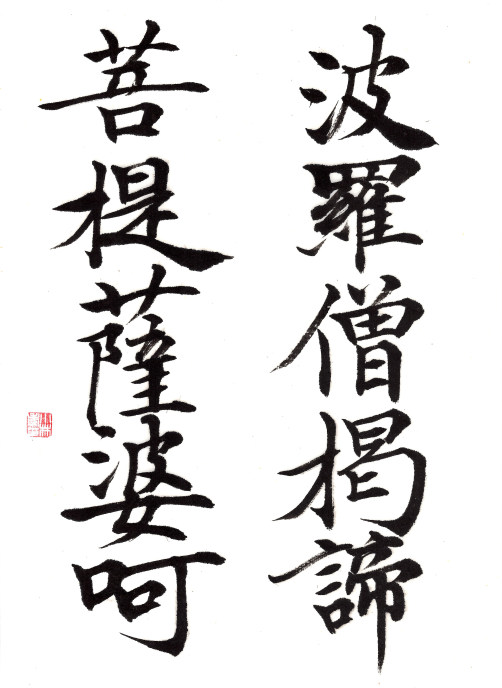 波羅僧揭諦
菩提薩婆呵